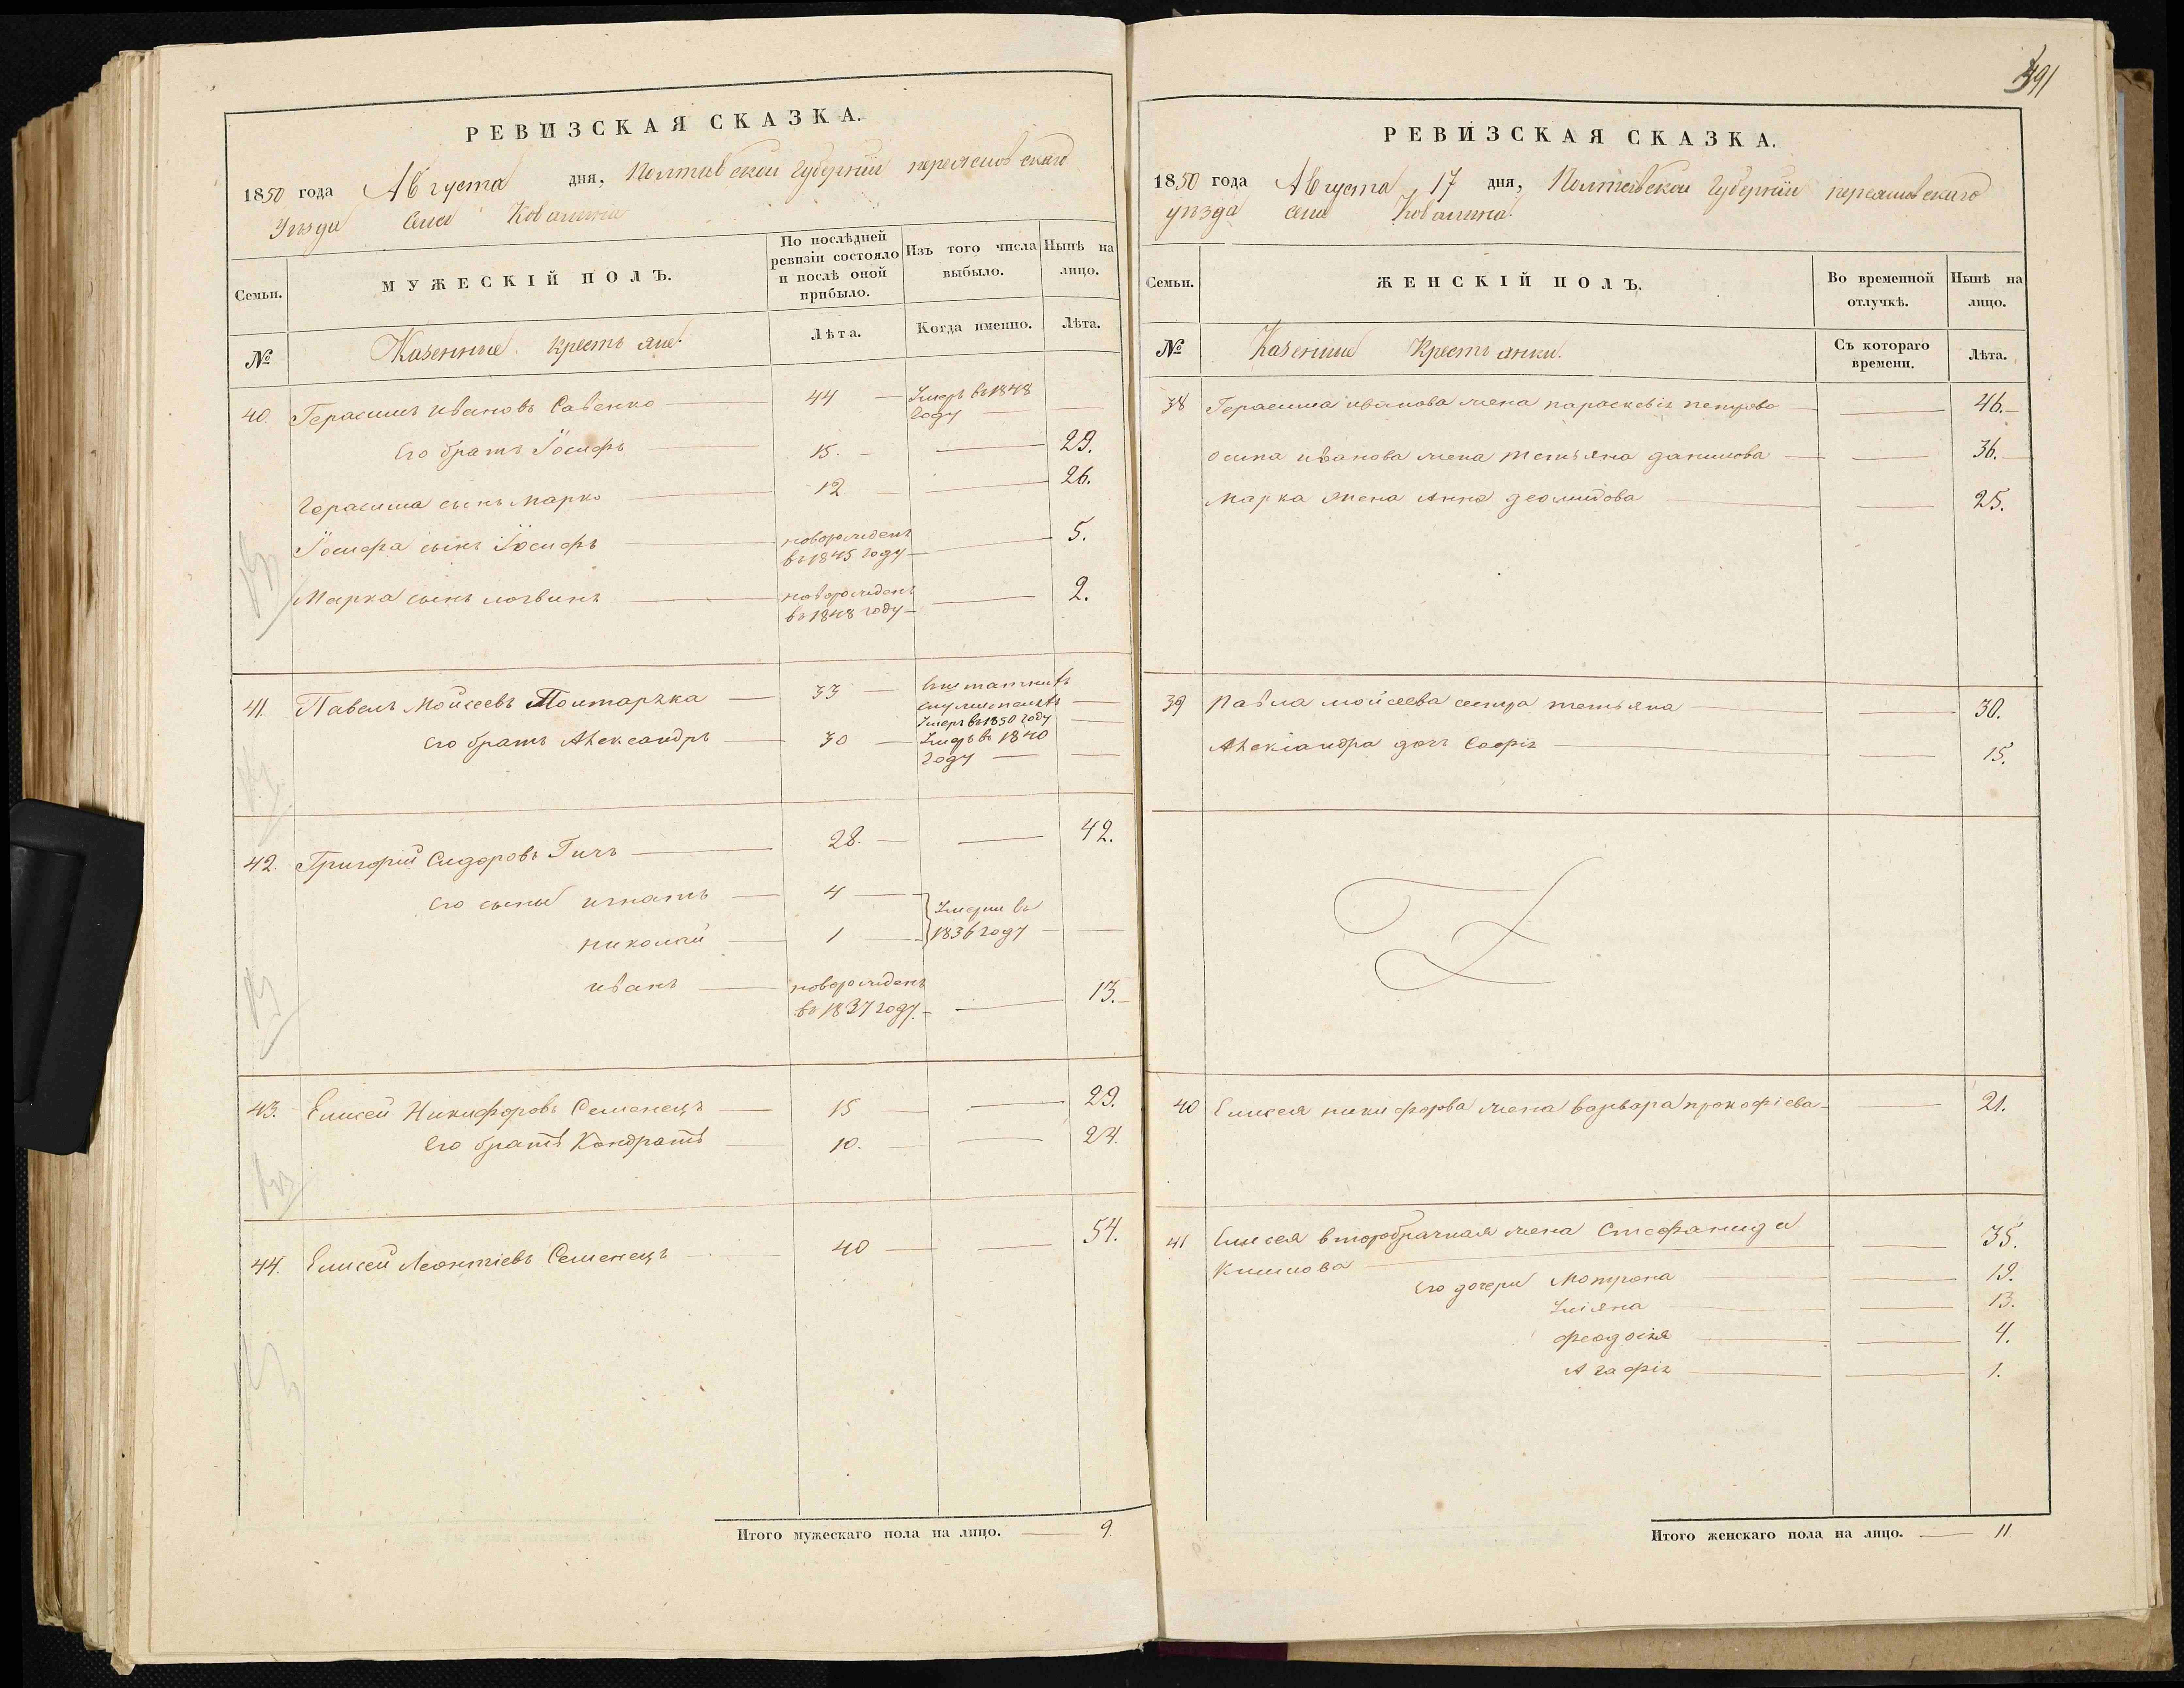 РЕВИЗСКАЯ СКАЗКА.
1850 года Августа дня, Полтавской Губерніи переяславскаго
Уезда Села Ковалина
Семьи.
МУЖЕСКІЙ ПОЛЪ.
По послѣдней
ревизіи состояло
и послѣ оной
прибыло.
Изъ того числа
выбыло.
Нынѣ на
лицо.
№
Казенные крестьяне.
Лѣта.
Когда именно.
Лѣта.
40. Герасимъ Ивановъ Савенко 44 Умеръ въ 1848
Году
Его братъ Іосифъ 15. 29.
Герасима сынъ Марко 12 26.
Іосифа сынъ Іосифъ новорожденъ 5.
въ 1845 году
Марка сынъ логвинъ новорожденъ 2.
въ 1848 году
41. Павелъ Мойсеевъ 33
Умеръ въ 1850 году
Его братъ Александръ 30 Умеръ въ 1840
Году
42. Григорій Сидоровъ Гичъ 28. 42.
Его сыны игнатъ 4 Умерли въ
николай 1 1836 году
иванъ новорожденъ 13.
въ 1837 году.
43. Елисей Никифоровъ Семенецъ 15 29.
Его братъ Кондратъ 10. 24.
44. Елисей Леонтіевъ Семенецъ 40 54.
Итого мужескаго пола на лицо. 9.
391
РЕВИЗСКАЯ СКАЗКА.
1850 года Августа 17 дня, Полтавской Губерніи переяславскаго
уезда села Ковалина.
Семьи.
ЖЕНСКІЙ ПОЛЪ.
Во временной
отлучкѣ.
Нынѣ на
лицо.
№
Казенные Крестьянки.
Съ котораго
времени.
Лѣта.
38 Герасима иванова жена параскевія петрова 46.
осипа иванова жена татьяна данилова 36.
Марка жена Анна деомидова 25.
39 Павла мойсеева сестра татьяна 30.
Александра дочь Софія 15.
40 Елисея никифорова жена варвара прокофіева 21.
41 Елисея второбрачная жена Стефанида 35.
Климова
Его дочери Мотрона 19.
Уліяна 13.
феодосія 4.
Агафія 1.
Итого женскаго пола на лицо. 11